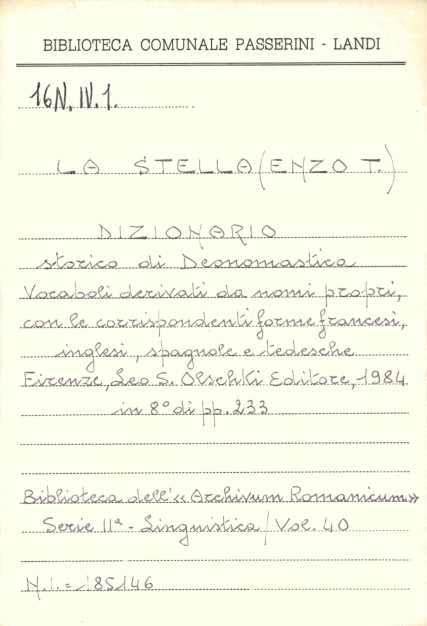 BIBLIOTECA COMUNALE PASSERINI - LANDI
16N.IV.1.
LA STELLA (ENZO T.)
DIZIONARIO
storico di Deonomastica
Vocaboli derivati da nomi propri,
con le corrispondenti forme francesi,
inglesi, spagnole e tedesche
Firenze, Leo S. Olschki Editore, 1984
in 8° di pp. 233
Biblioteca dell'«Archivum Romanicum»
Serie IIª - Linguistica / Vol. 40
N.I. = 185146